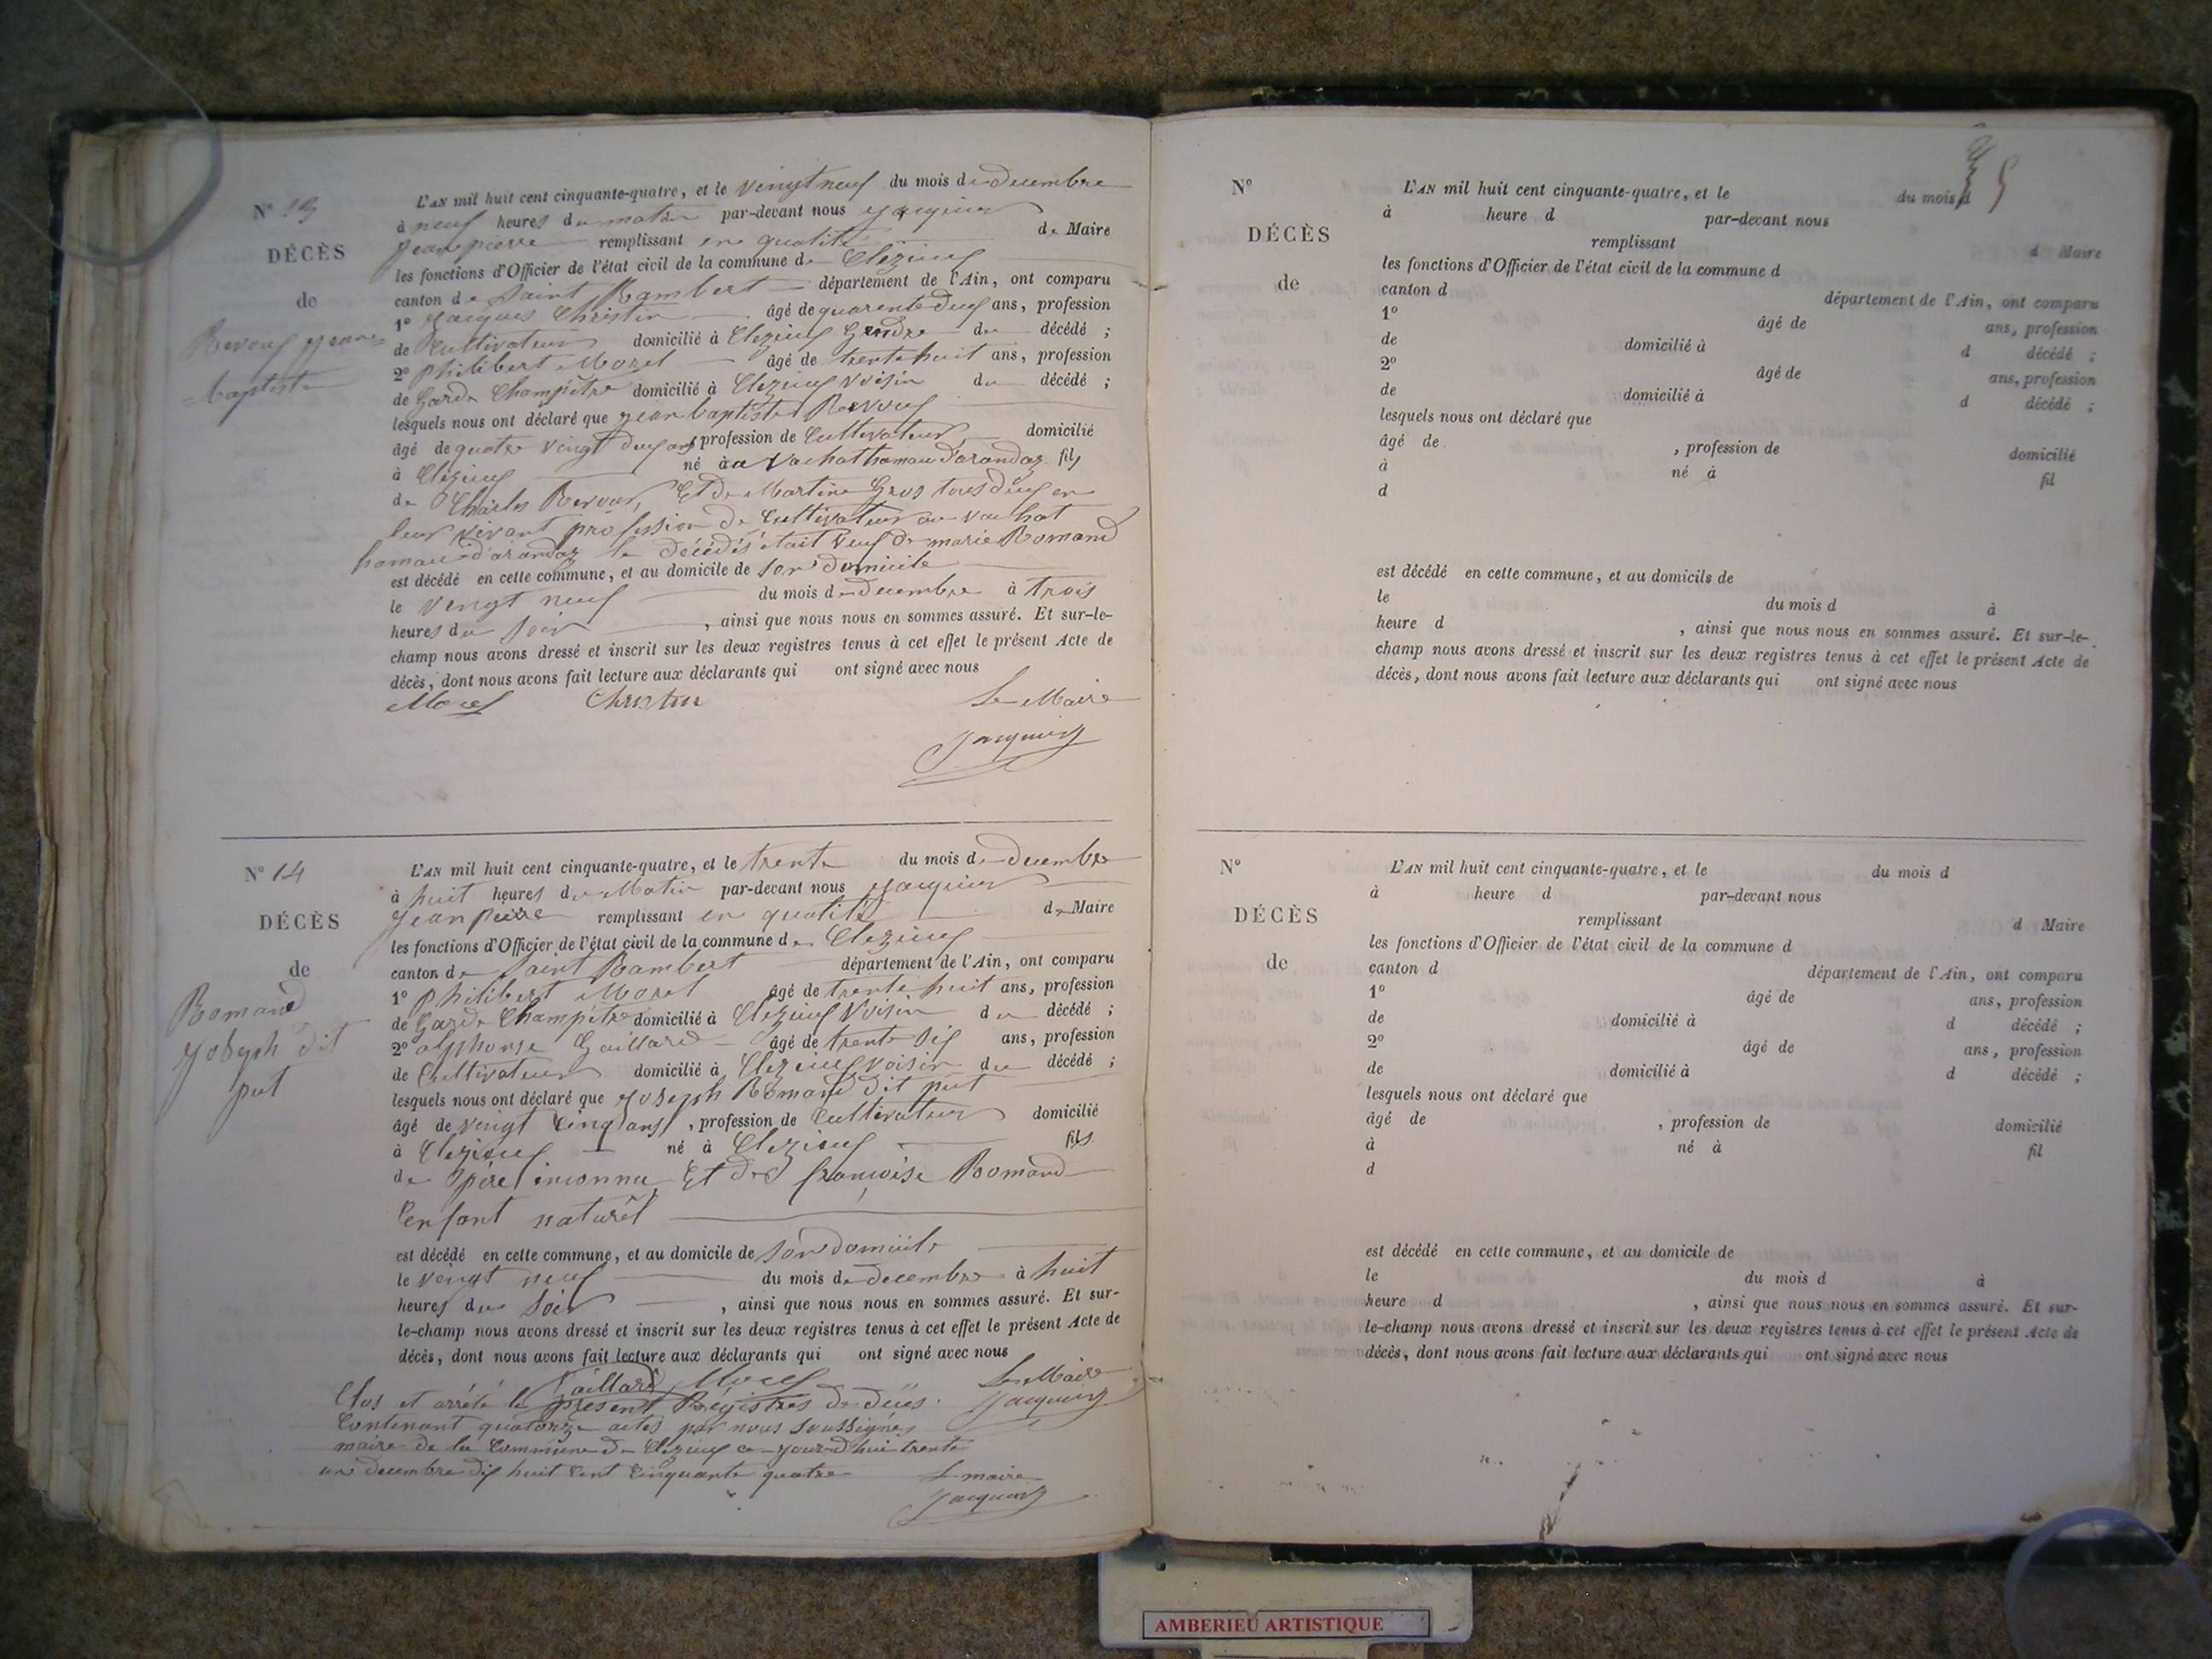 N° 13
DÉCÈS
de
baptiste
L'AN mil huit cent cinquante-quatre, et le vingt neuf du mois de decembre
à neuf heures du matin par-devant nous jacquier
Jean pierre remplissant en qualité de Maire
les fonctions d'Officier de l'état civil de la commune de Clezieux
canton de Saint Rambert département de l'Ain, ont comparu
1° jacques Christin âgé de quarente deux ans, profession
de Cultivateur domicilié à Clezieux Gendre du décédé ;
2° philibert Morel âgé de trente huit ans, profession
de Garde Champêtre domicilié à Clezieux voisin du décédé ;
lesquels nous ont déclaré que jean baptiste
âgé de quatre vingt deux ans, profession de Cultivateur domicilié
à Clezieux né au Vachat hamau d'arandaz fils
de Charles Et de Martine Gros tous deux en
leur vivant profession de Cultivateur au vachat
hamau d'arandaz le décédés était veuf de marie Romand
est décédé en cette commune, et au domicile de son domicile
le vingt neuf du mois de decembre à trois
heures du soir , ainsi que nous nous en sommes assuré. Et sur-le-
champ nous avons dressé et inscrit sur les deux registres tenus à cet effet le présent Acte de
décès, dont nous avons fait lecture aux déclarants qui ont signé avec nous
Morel Christin Le Maire
Jacquier
N° 14
DÉCÈS
de
Romand
joseph dit
put
L'AN mil huit cent cinquante-quatre, et le trente du mois de decembre
à huit heures du Matin par-devant nous jacquier
Jean pierre remplissant en qualité de Maire
les fonctions d'Officier de l'état civil de la commune de Clezieux
canton de Saint Rambert département de l'Ain, ont comparu
1° philibert Morel âgé de trente huit ans, profession
de Garde Champêtre domicilié à Clezieux Voisin du décédé ;
2° alphonse Gaillard âgé de trente six ans, profession
de Cultivateur domicilié à Clezieux voisin du décédé ;
lesquels nous ont déclaré que joseph Romand dit put
âgé de vingt cinq ans, profession de Cultivateur domicilié
à Clezieux né à Clezieux fils
de père inconnu Et de francoise Romand
l'enfant naturel
est décédé en cette commune, et au domicile de son domicile
le vingt neuf du mois de decembre à huit
heures du soir , ainsi que nous nous en sommes assuré. Et sur-
le-champ nous avons dressé et inscrit sur les deux registres tenus à cet effet le présent Acte de
décès, dont nous avons fait lecture aux déclarants qui ont signé avec nous
Gaillard Morel Le Maire
Jacquier
Clos et arrété le présent Régistres de décès
Contenant quatorze actes par nous soussignés
maire de la Commune de Clezieux ce jour d'hui trente
un decembre dix huit cent cinquante quatre
Le maire
Jacquier
N°
DÉCÈS
de
L'AN mil huit cent cinquante-quatre, et le du mois d
à heure d par-devant nous
remplissant d Maire
les fonctions d'Officier de l'état civil de la commune d
canton d département de l'Ain, ont comparu
1° âgé de ans, profession
de domicilié à d décédé ;
2° âgé de ans, profession
de domicilié à d décédé ;
lesquels nous ont déclaré que
âgé de , profession de domicilié
à né à fil
d
est décédé en cette commune, et au domicils de
le du mois d à
heure d , ainsi que nous nous en sommes assuré. Et sur-le-
champ nous avons dressé et inscrit sur les deux registres tenus à cet effet le présent Acte de
décès, dont nous avons fait lecture aux déclarants qui ont signé avec nous
N°
DÉCÈS
de
L'AN mil huit cent cinquante-quatre, et le du mois d
à heure d par-devant nous
remplissant d Maire
les fonctions d'Officier de l'état civil de la commune d
canton d département de l'Ain, ont comparu
1° âgé de ans, profession
de domicilié à d décédé ;
2° âgé de ans, profession
de domicilié à d décédé ;
lesquels nous ont déclaré que
âgé de , profession de domicilié
à né à fil
d
est décédé en cette commune, et au domicile de
le du mois d à
heure d , ainsi que nous nous en sommes assuré. Et sur-
le-champ nous avons dressé et inscrit sur les deux registres tenus à cet effet le présent Acte de
décès, dont nous avons fait lecture aux déclarants qui ont signé avec nous
AMBERIEU ARTISTIQUE